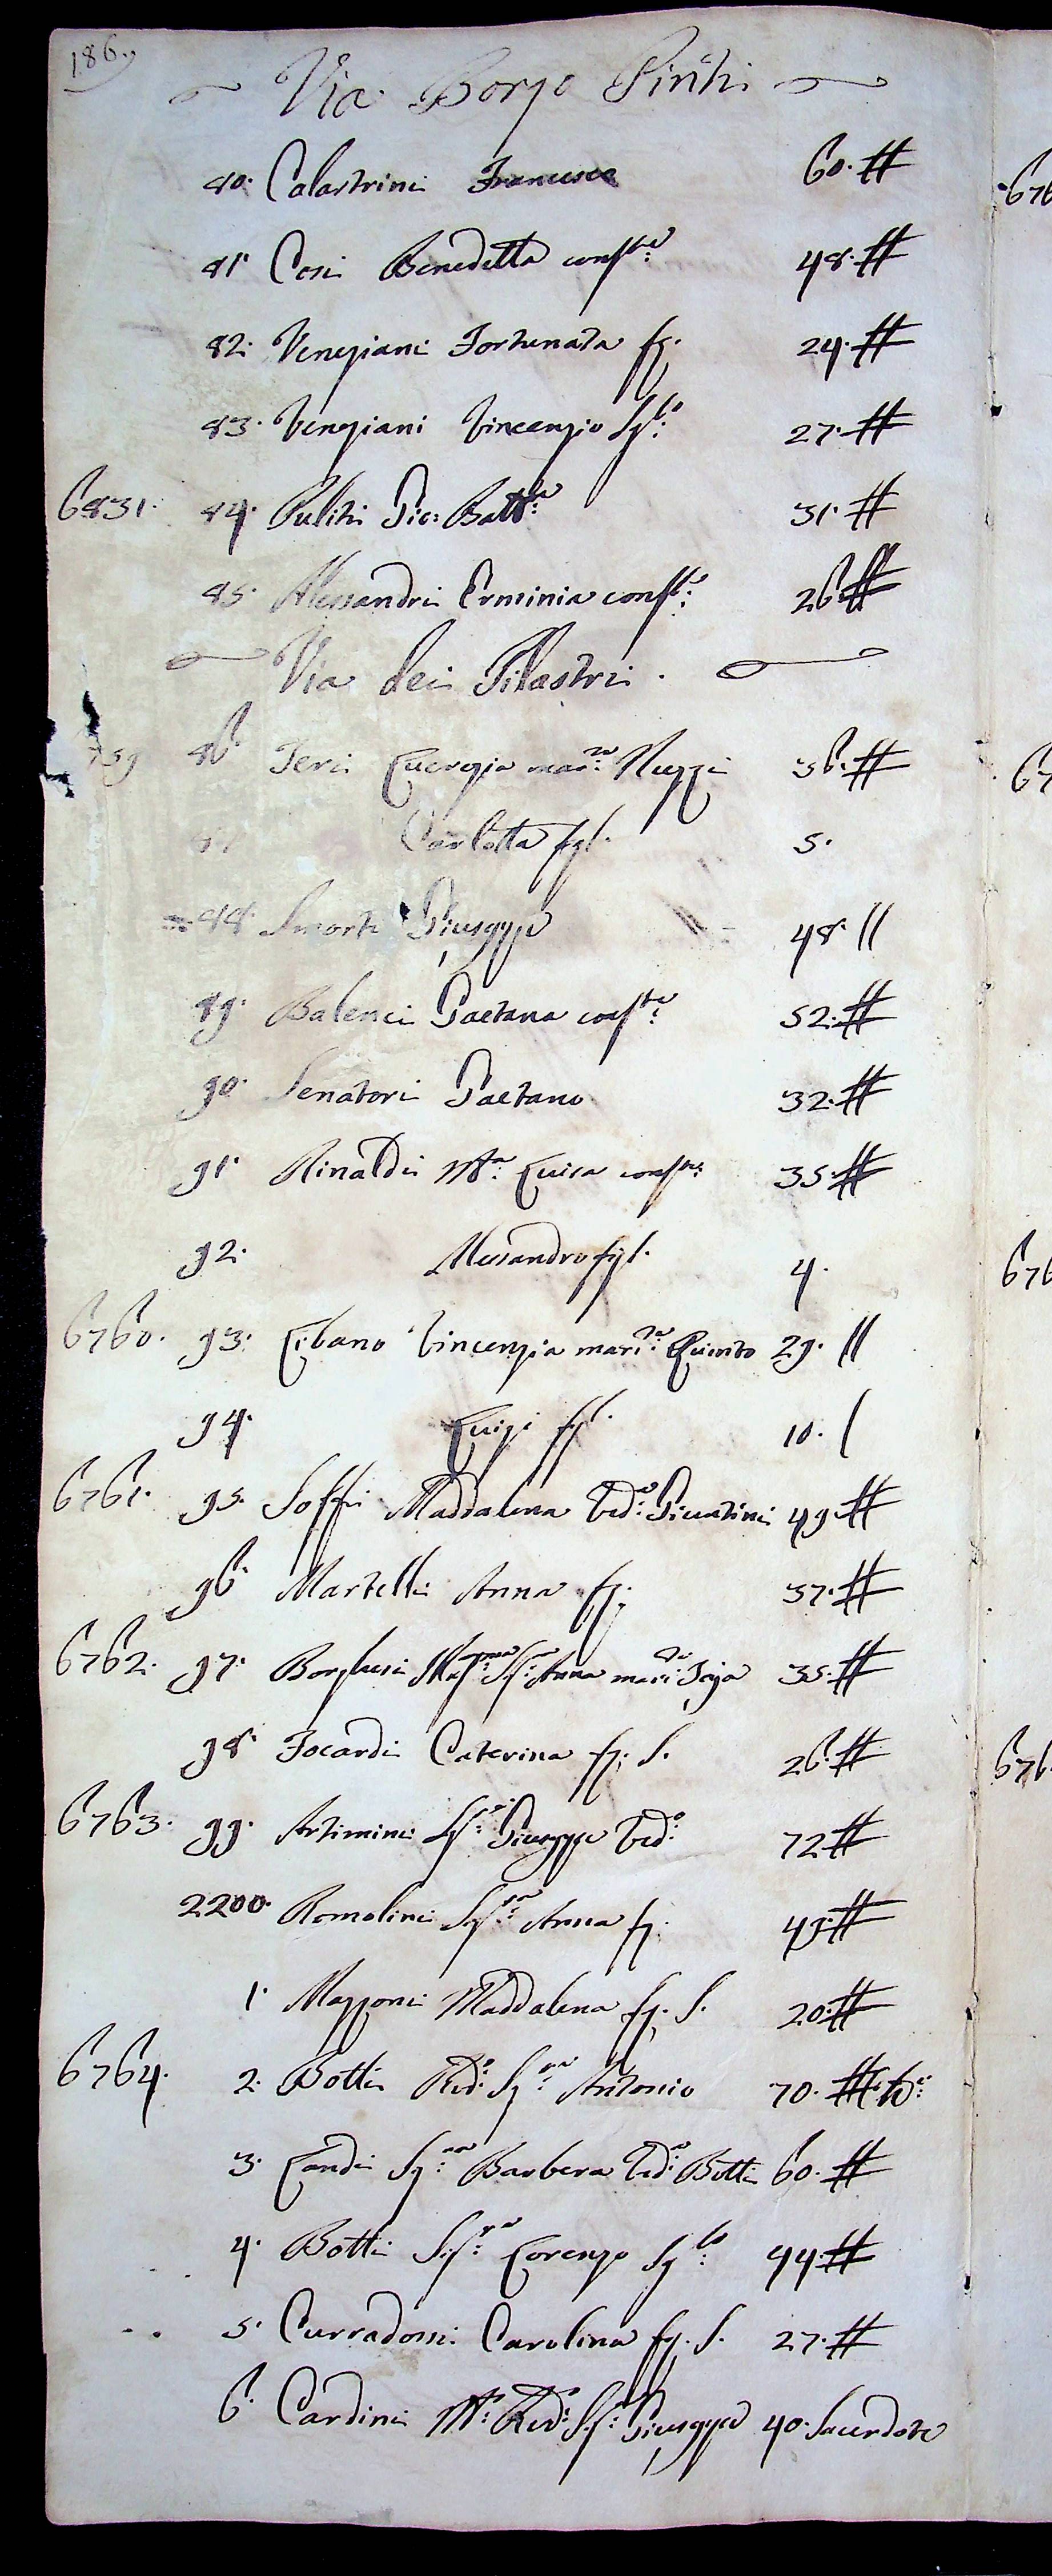 186.
Via Borgo Pinti
80. Calastrini Francesca 60. #
81. Cosi Benedetta conste: 48. #
82. Veneziani Fortunata fg. 24. #
83. Veneziani Vincenzio fglo: 27. #
6831. 84. Puliti Gio: Batta: 31. #
85. Alessandri Erminia conste: 26. #
Via dei Pilastri.
759 86. Neri Lucrezia marta: Nuzzi 36. #
87 Carlotta figl. 5.
88. Smorti Giuseppe 48. //
89. Balenci Gaetana conste: 52. #
90. Senatori Gaetano 32. #
91. Rinaldi Ma: Luisa conste: 35. #
92. Alesandro figl. 4.
6760. 93. Libano Vincenzia marita: Quinto 29. //
94. Luigi figl. 10. /
6761. 95. Soffi Maddalena Veda: 49. #
96. Martelli Anna fg. 37. #
6762. 97. Borghesi Sigra: Anna marita: 35. #
98. Focardi Caterina fg. S. 26. #
6763. 99. Artimini Sigr: Giuseppe Vedo: 72. #
2200. Romolini Sigra: Anna fg. 49. #
1. Mazzoni Maddalena fg. S. 20. #
6764. 2. Botti Redo: Sigr: Antonio 70. #
3. Landi Sigra: Barbera Veda: Botti 60. #
4. Botti Sigr: Lorenzo fglo: 44. #
5. Curradossi Carolina fg. S. 27. #
6. Cardini Mo: Redo: Sr: Giuseppe 40. Sacerdote